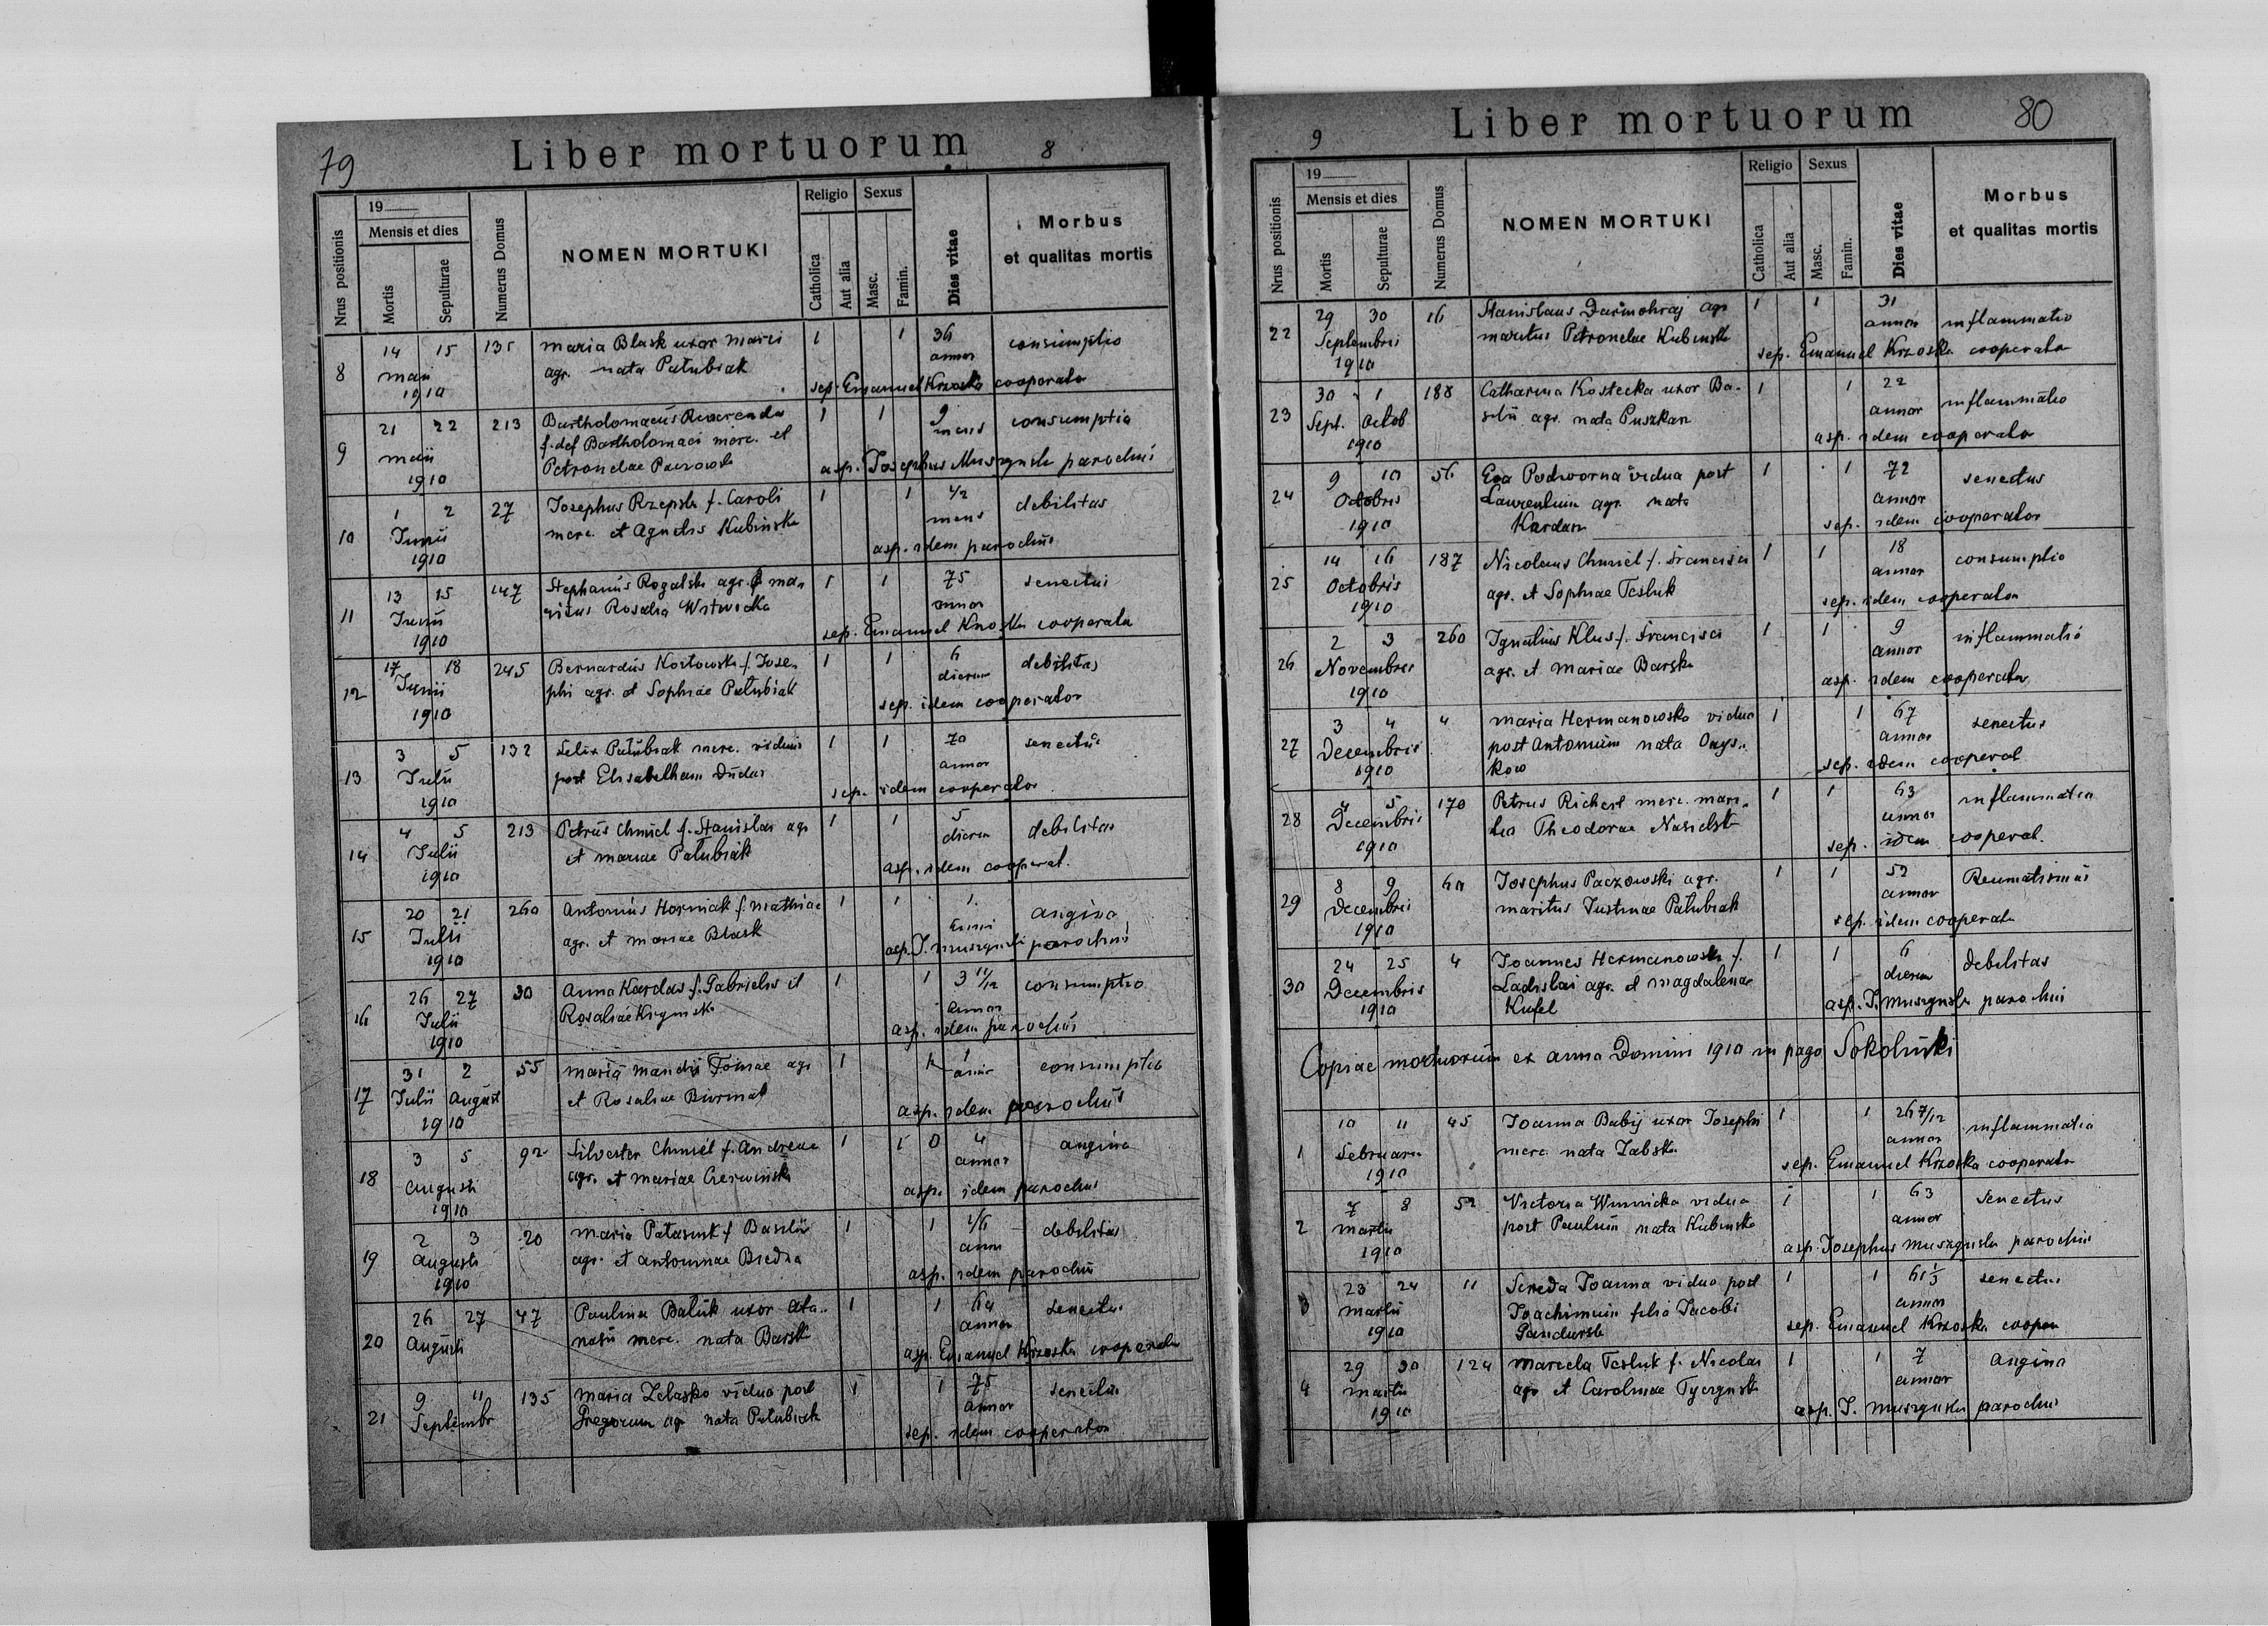 79
Liber mortuorum
8
Nrus positionis
19
Mensis et dies
Mortis
Sepulturae
Numerus Domus
NOMEN MORTUKI
Religio
Catholica
Aut alia
Sexus
Masc.
Famin.
Dies vitae
Morbus
et qualitas mortis
8 14 15 135 Maria Blask uxor Marci 1 1 36 consumptio
maii agr. nata Patubiak annor
1910 sep. Emanuel Krzoska cooperator
9 21 22 213 Bartholomaeus Rewerenda 1 1 9 consumptio
maii f. def Bartholomaei merc. et mens
1910 Petronelae Paczowski asp. Josephus Muszynski parochus
10 1 2 27 Josephus Rzepski f. Caroli 1 1 1/2 debilitas
Junii merc. et Agnetis Kubinska mens
1910 asp. idem parochus
11 13 15 147 Stephanus Rogalski agr. ma- 1 1 75 senectus
Junii ritus Rosalia annor
1910 sep. Emanuel Krzoska cooperator
12 17 18 245 Bernardus Kortowski f. Jose- 1 1 6 debilitas
Junii phi agr. et Sophiae Patubiak dierum
1910 sep. idem cooperator
13 3 5 132 Felix Patubiak merc. viduus 1 1 70 senectus
Julii post Elisabetham Dudar annor
1910 sep. idem cooperator
14 4 5 213 Petrus Chmiel f. Stanislai agr 1 1 5 debilitas
Julii et Mariae Patubiak dierum
1910 asp. idem cooperat.
15 20 21 260 Antonius Horniak f. Mathiae 1 1 1 angina
Julii agr. et Mariae Blask anni
1910 asp. J. Muszynski parochus
16 26 27 30 Anna Kardas f. Gabrielis et 1 1 3 11/12 consumptio
Julii Rosaliae annor
1910 asp. idem parochus
17 31 2 55 Maria Tomae agr 1 1 consumptio
Julii August et Rosaliae
1910 asp. idem parochus
18 3 5 92 Silvester Chmiel f. Andreae 1 1 0 4 angina
Augusti agr. et Mariae Czerwinska annor
1910 asp. idem parochus
19 2 3 20 Maria f. Basilii 1 1 1/6 debilitas
Augusti agr. et Antoninae Biedna anni
1910 asp. idem parochus
20 26 27 47 Paulina Baluk uxor Ata- 1 1 64 senectus
Augusti nasii merc. nata Barski annor
asp. Emanuel Krzoska cooperator
21 9 11 135 Maria vidua post 1 1 75 senectus
Septembr Gregorium agr nata Patubiak annor
sep. idem cooperator
9
Liber mortuorum
80
Nrus positionis
19
Mensis et dies
Mortis
Sepulturae
Numerus Domus
NOMEN MORTUKI
Religio
Catholica
Aut alia
Sexus
Masc.
Famin.
Dies vitae
Morbus
et qualitas mortis
22 29 30 16 Stanislaus Darmohraj agr 1 1 31 inflammatio
Septembris maritus Petronelae Kubinska annor
1910 sep. Emanuel Krzoska cooperator
23 30 1 188 Catharina Kostecka uxor Ba- 1 1 22 inflammatio
Sept. Octob silii agr. nata Puszkar annor
1910 asp. idem cooperator
24 9 10 56 Eva Podworna vidua post 1 1 72 senectus
Octobris Laurentium agr. nata annor
1910 Kardan sep. idem cooperator
25 14 16 187 Nicolaus Chmiel f. Francisci 1 1 18 consumptio
Octobris agr. et Sophiae Tesluk annor
1910 sep. idem cooperator
26 2 3 260 Ignatius Klus f. Francisci 1 1 9 inflammatio
Novembris agr. et Mariae Barska annor
1910 asp. idem cooperator
27 3 4 4 Maria Hermanowska vidua 1 1 67 senectus
Decembris post Antonium nata Onys- annor
1910 kow sep. idem cooperat
28 4 5 170 Petrus Richert merc. mari- 1 1 63 inflammatio
Decembris tus Theodorae annor
1910 sep. idem cooperat.
29 8 9 60 Josephus Paczowski agr. 1 1 52 Reumatismus
Decembris maritus Justinae Patubiak annor
1910 sep. idem cooperator
30 24 25 4 Joannes Hermanowski f. 1 1 6 debilitas
Decembris Ladislai agr. et Magdalenae dierum
1910 Kufel asp. J. Muszynski parochus
Copiae mortuorum ex anno Domini 1910 in pago Sokolniki
1 10 11 45 Joanna Babij uxor Josephi 1 1 26 7/12 inflammatio
Februarii merc. nata Zabska annor
1910 sep. Emanuel Krzoska cooperator
2 7 8 52 Victoria Winnicka vidua 1 1 63 senectus
Martii post Paulum nata Kubinska annor
1910 asp. Josephus Muszynski parochus
3 23 24 11 Sereda Joanna vidua post 1 1 61 1/3 senectus
Martii Joachimum filia Jacobi annor
1910 sep. Emanuel Krzoska cooper
4 29 30 124 Marcela Tesluk f. Nicolai 1 1 7 Angina
Martii agr et Carolinae annor
1910 asp. J. Muszynski parochus